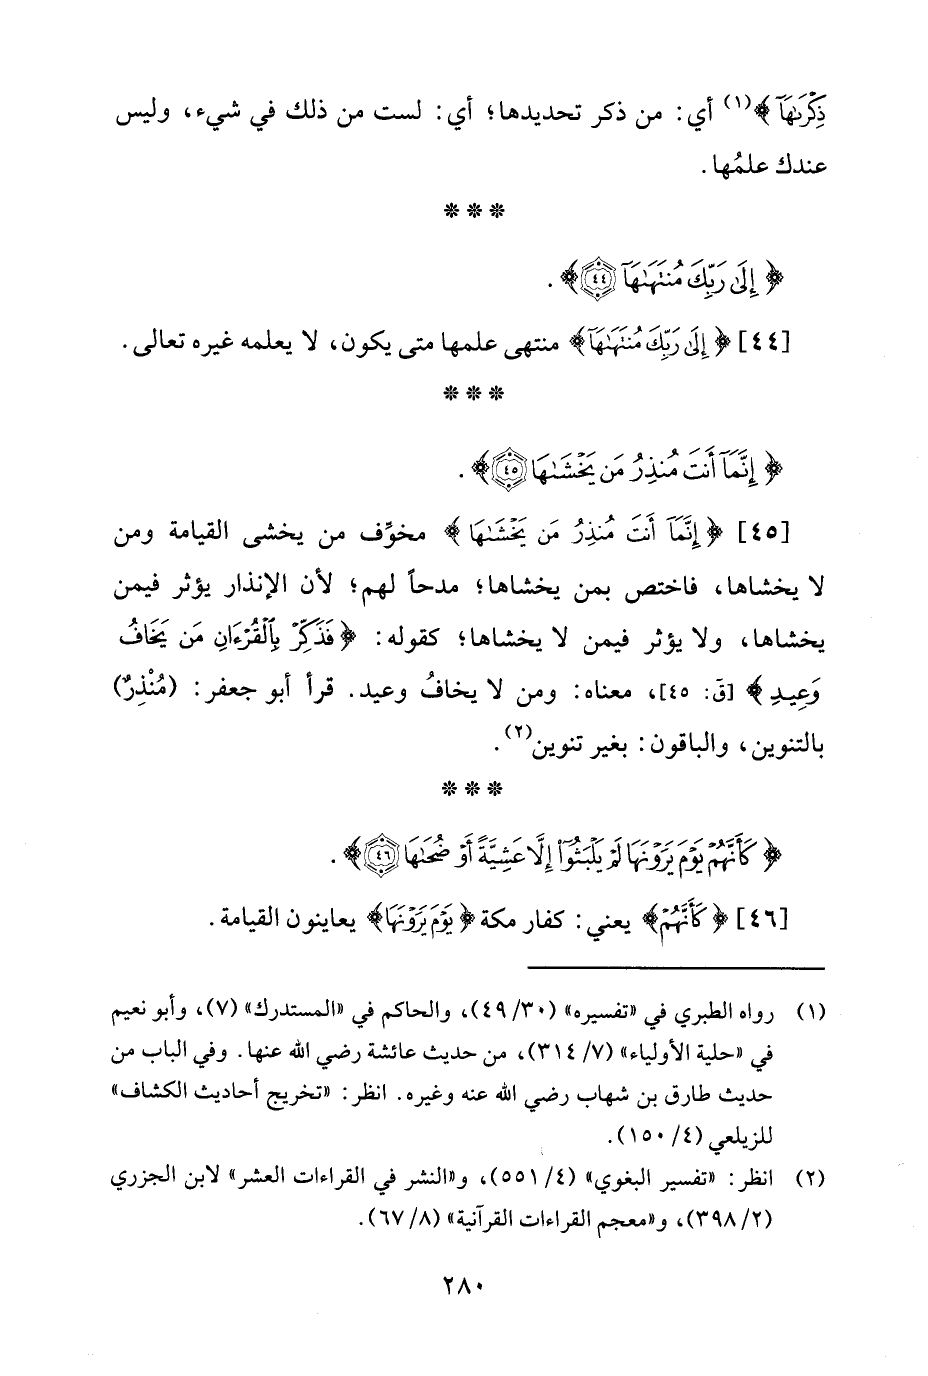 ذِكْرَىٰهَآ ﴾(١) أي: من ذكر تحديدها؛ أي: لست من ذلك في شيء، وليس
عندك علمُها.
* * *
﴿ إِلَىٰ رَبِّكَ مُنتَهَىٰهَآ ٤٤ ﴾.
[٤٤] ﴿ إِلَىٰ رَبِّكَ مُنتَهَىٰهَآ ﴾ منتهى علمها متى يكون، لا يعلمه غيره تعالى.
* * *
﴿ إِنَّمَآ أَنتَ مُنذِرُ مَن يَخْشَىٰهَا ٤٥ ﴾.
[٤٥] ﴿ إِنَّمَآ أَنتَ مُنذِرُ مَن يَخْشَىٰهَا ﴾ مخوِّف من يخشى القيامة ومن
لا يخشاها، فاختص بمن يخشاها؛ مدحاً لهم؛ لأن الإنذار يؤثر فيمن
يخشاها، ولا يؤثر فيمن لا يخشاها؛ كقوله: ﴿ فَذَكِّرْ بِٱلْقُرْءَانِ مَن يَخَافُ
وَعِيدِ ﴾ [قَ: ٤٥]، معناه: ومن لا يخافُ وعيد. قرأ أبو جعفر: (مُنْذِرٌ)
بالتنوين، والباقون: بغير تنوين(٢).
* * *
﴿ كَأَنَّهُمْ يَوْمَ يَرَوْنَهَا لَمْ يَلْبَثُوٓا۟ إِلَّا عَشِيَّةً أَوْ ضُحَىٰهَا ٤٦ ﴾.
[٤٦] ﴿ كَأَنَّهُمْ ﴾ يعني: كفار مكة ﴿ يَوْمَ يَرَوْنَهَا ﴾ يعاينون القيامة.
(١) رواه الطبري في «تفسيره» (٣٠/ ٤٩)، والحاكم في «المستدرك» (٧)، وأبو نعيم
في «حلية الأولياء» (٧/ ٣١٤)، من حديث عائشة رضي الله عنها. وفي الباب من
حديث طارق بن شهاب رضي الله عنه وغيره. انظر: «تخريج أحاديث الكشاف»
للزيلعي (٤/ ١٥٠).
(٢) انظر: «تفسير البغوي» (٤/ ٥٥١)، و«النشر في القراءات العشر» لابن الجزري
(٢/ ٣٩٨)، و«معجم القراءات القرآنية» (٨/ ٦٧).
٢٨٠